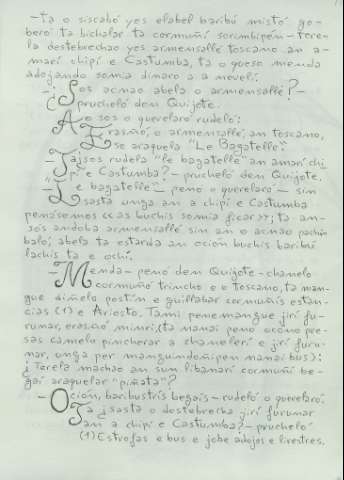 -ta o siscabó yos elabel baribú mistó go-
beró ta bichalar ta cormuñí sorimbipen- Teren-
la dostebrechao yos armensallé toscano an a-
marí chipí e Castumba, ta o qveso menda
adojando somia dinaro a a nevelí.
-¿Sos acnao abela o armensallé?-
prucheló den Quijote.
Ao sos o querelaró rudeló:
Erasñó, o armensallé, an toscano,
se araquela "Le Bagatelle".
-Ta ¿sos rudela "le bagatelle" an amarí chi-
pí e Castumba?- prucheló den Quijote.
-"Le bagatelle"- penó o querelaró- sin
sasta unga an a chipí e Castumba
penásemos «as buchis somia ficar»; ta an-
sós andoba armensallé sin an o acnao pachi-
baló, abela ta estarda an oción buchis baribú
lachis ta e ochí.
-Menda- penó den Quijote- chanelo
cormuñó trincho e o Toscano, ta man-
gue diñelo postín e guillabar cormuñís estan-
cias (1) e Ariosto. Tami penemangue jirí fu-
rumar, erasñó minrí, (ta nanai peno ocono pre-
sas camelo pincherar a chanelerí e jirí furu-
mar, unga per manguindoñipen nanai bus):
¿Terela machao an sun libanarí cormuñí be-
gaí araquelar "piñata"?
-Oción, baribustrís begais- rudeló o querelaró.
-Ta ¿sasta o dostebrecha jirí furumar
an a chipí e Castumba?- prucheló
(1) Estrofas e bus e jobe adojos e livestres.